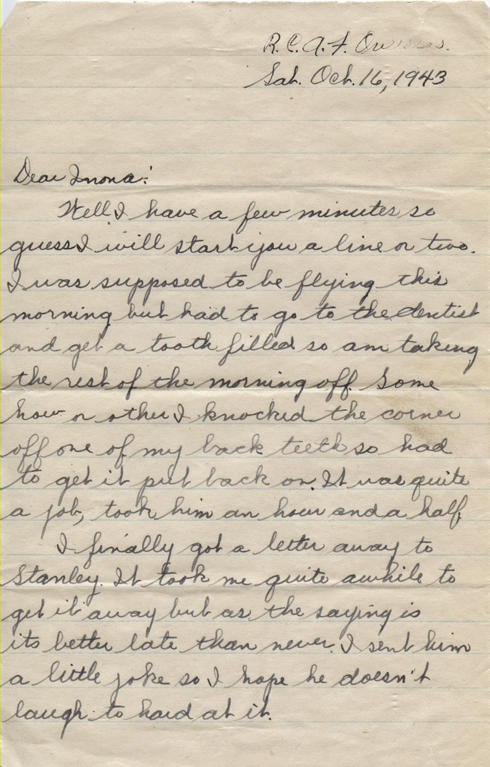 R.C.A.F. Overseas.
Sat. Oct. 16, 1943
Dear Inona:
Well I have a few minutes so
guess I will start you a line or two.
I was supposed to be flying this
morning but had to go to the dentist
and get a tooth filled so am taking
the rest of the morning off. Some
how or other I knocked the corner
off one of my back teeth so had
to get it put back on. It was quite
a job, took him an hour and a half.
I finally got a letter away to
Stanley. It took me quite awhile to
get it away but as the saying is
its better late than never. I sent him
a little joke so I hope he doesn't
laugh to hard at it.